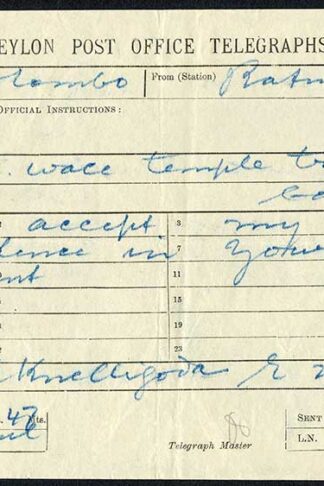 EYLON POST OFFICE TELEGRAPHS
lombo From (Station) Ratn
OFFICIAL INSTRUCTIONS:
wace temple tr
accept 3 my
dence in 7 your
nt 11
15
19
23
Knelligoda E
47 Mts. SENT
Telegraph Master L.N.